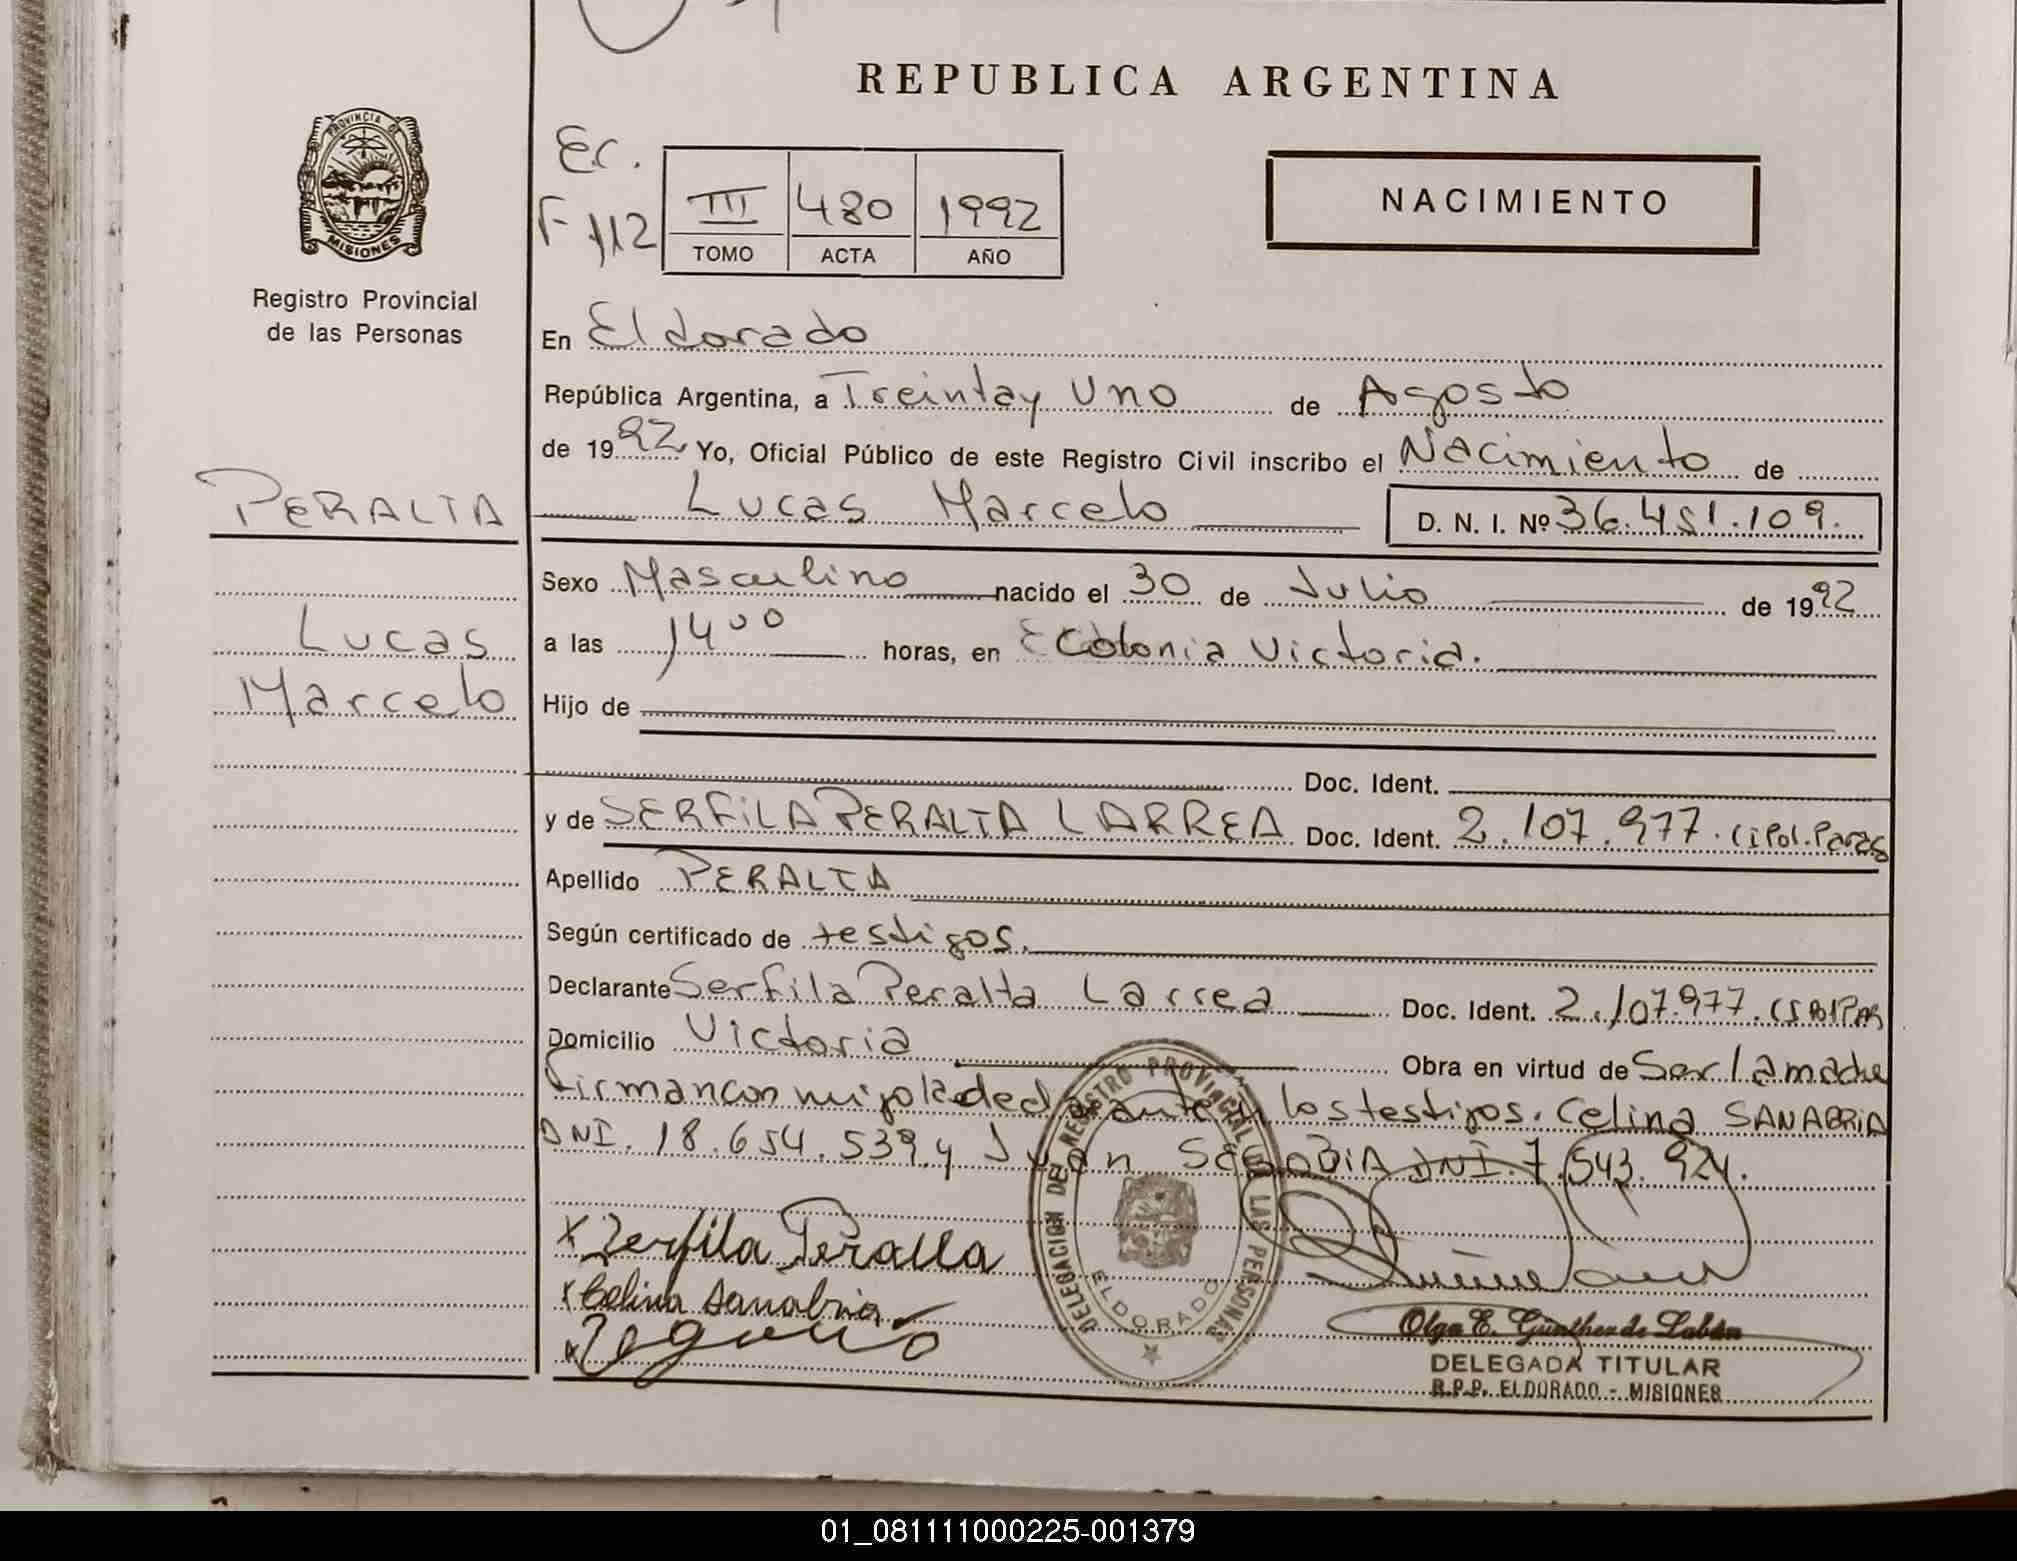 REPUBLICA ARGENTINA
PROVINCIA DE
MISIONES
Registro Provincial
de las Personas
Ec.
F 112
III 480 1992
TOMO ACTA AÑO
NACIMIENTO
En Eldorado
República Argentina, a Treinta y Uno de Agosto
de 1992 Yo, Oficial Público de este Registro Civil inscribo el Nacimiento de
PERALTA
Lucas Marcelo D. N. I. Nº 36.451.109.
Sexo Masculino nacido el 30 de Julio de 1992
Lucas
Marcelo
a las 14 00 horas, en Colonia Victoria.
Hijo de
Doc. Ident.
y de SERFILA PERALTA LARREA Doc. Ident. 2.107.977. CiPol.Parag
Apellido PERALTA
Según certificado de testigos.
Declarante Serfila Peralta Larrea Doc. Ident. 2.107.977.
Domicilio Victoria Obra en virtud de Ser la madre
Firman con migo la declarante y los testigos. Celina SANABRIA
DNI. 18.654.539 y Juan SANABRIA DNI. 7.543.924.
x Zerfila Peralta
x Celina Sanabria
x
DELEGACION DE REGISTRO PROVINCIAL DE LAS PERSONAS
ELDORADO
Olga E. Günther de Labán
DELEGADA TITULAR
R.P.P. ELDORADO - MISIONES
01_081111000225-001379